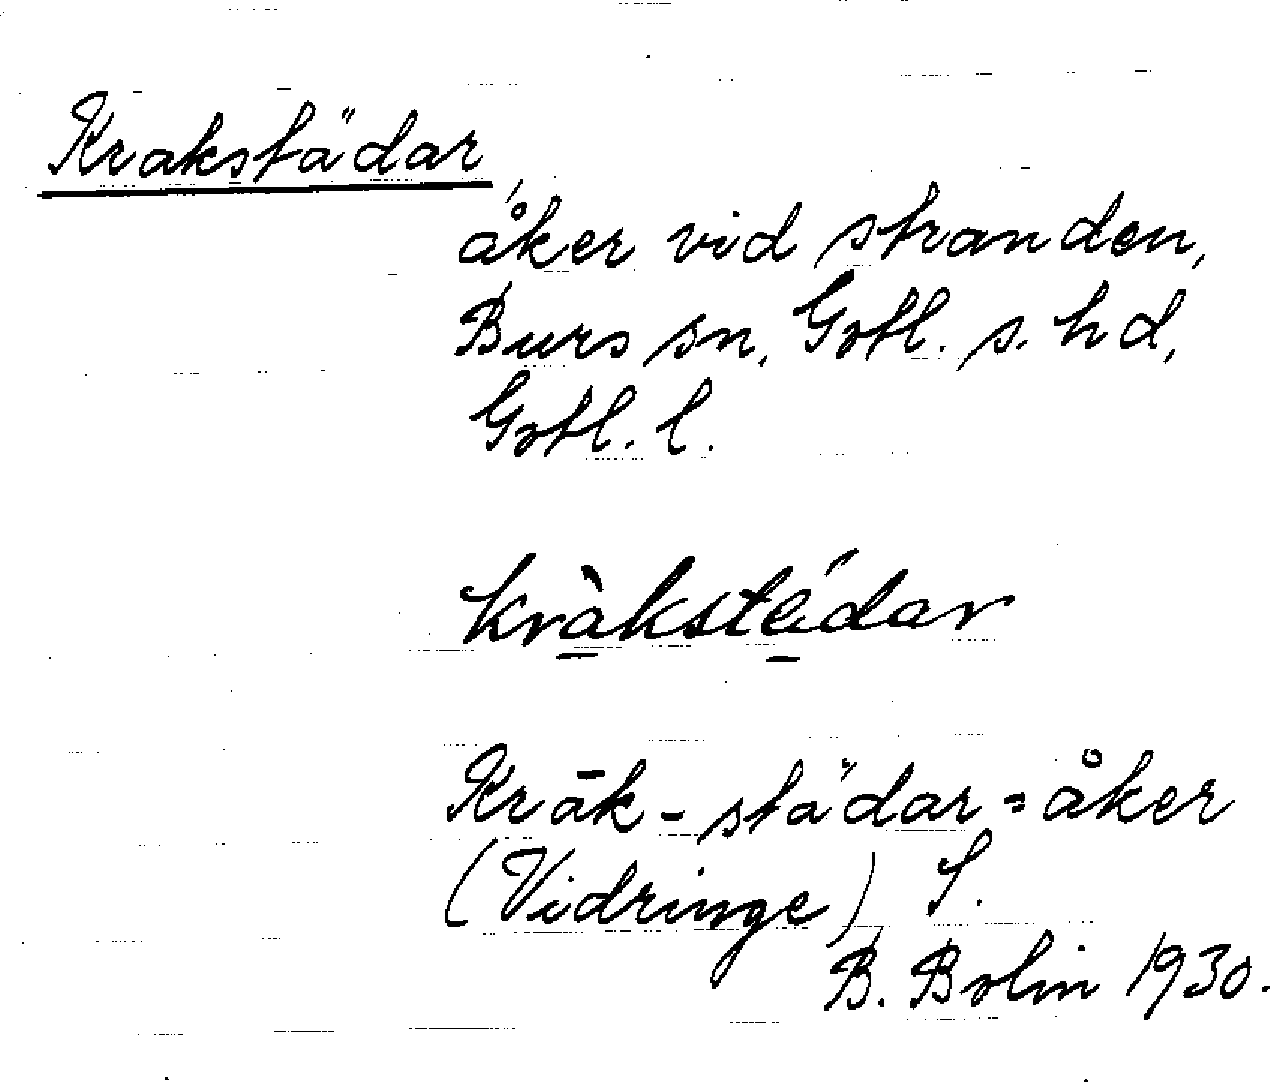 Krakstädar,
åker vid stranden,
Burs sn, Gotl. s. hd,
Gotl. l.
kràkstédar
Krāk-städar = åker
(Vidringe) S.
B. Bolin 1930.